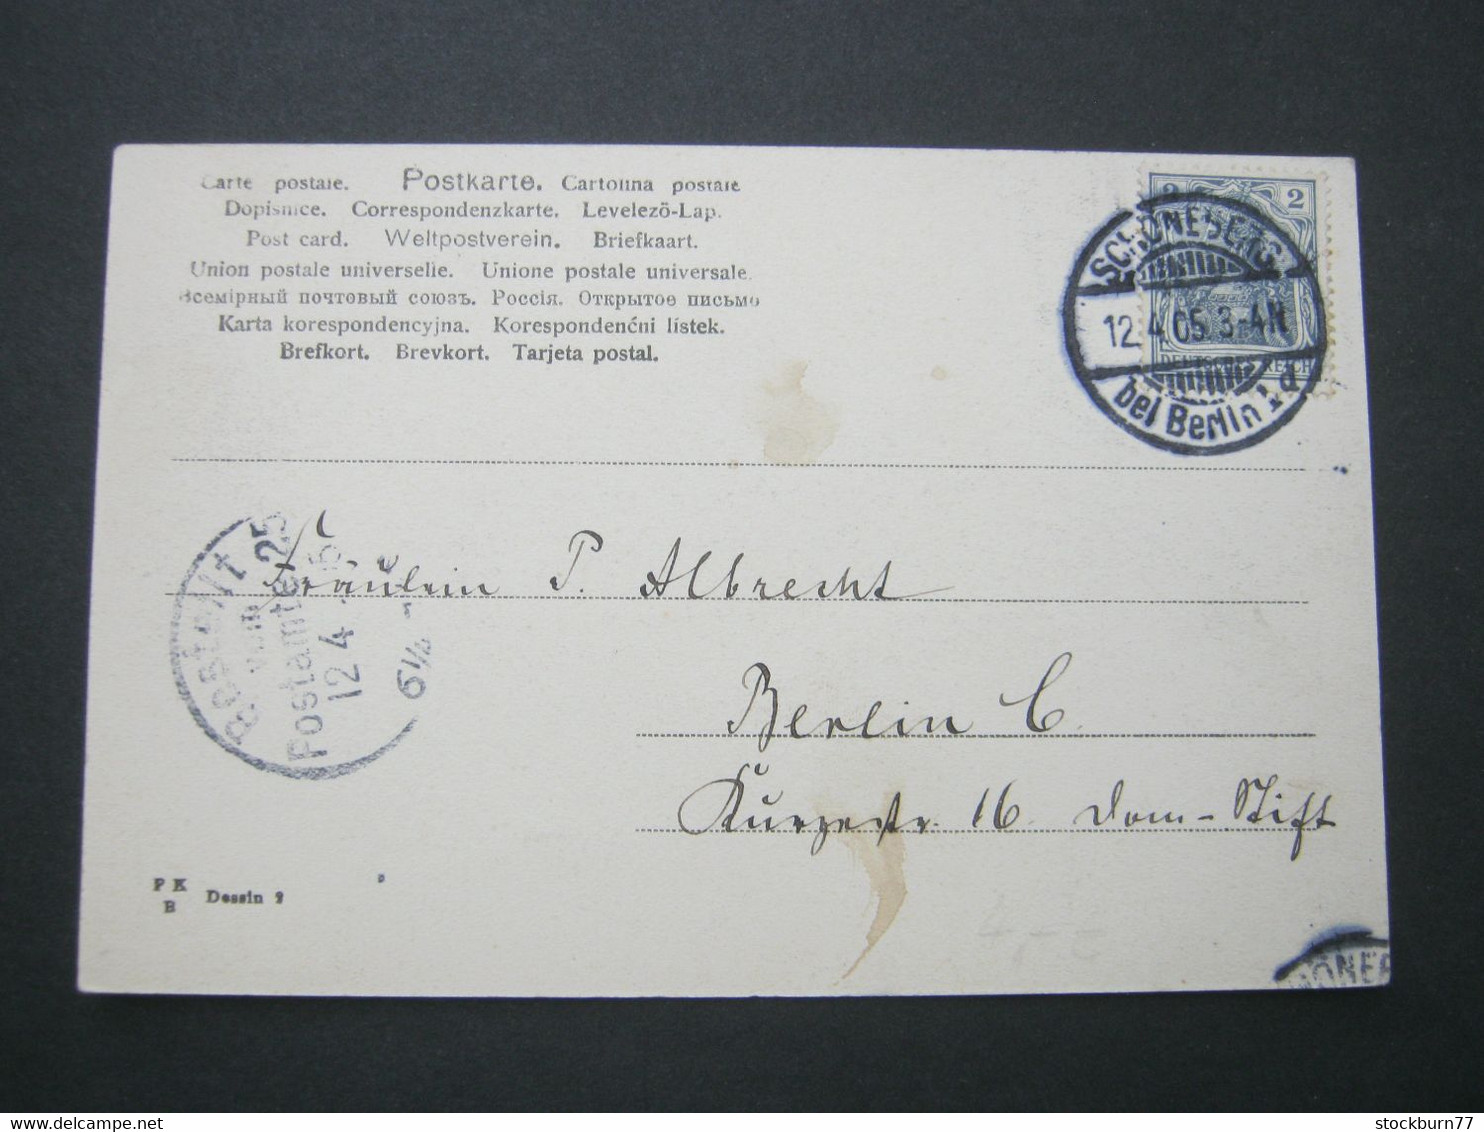 Carte postale. Postkarte. Cartolina postale
Dopisnice. Correspondenzkarte. Levelező-Lap.
Post card. Weltpostverein. Briefkaart.
Union postale universelle. Unione postale universale.
Всемірный почтовый союзъ. Россія. Открытое письмо
Karta korespondencyjna. Korespondenćni lístek.
Brefkort. Brevkort. Tarjeta postal.
2 2
DEUTSCHES REICH
SCHÖNEBERG
12.4.05.3-4N
bei Berlin 1d
Bestellt
vom
Postamte 25
12 4
6½
Fräulein P. Albrecht
Berlin C.
Kurzestr. 16 Dom-Stift
P K
B
Dessin 9
4,- €
HÖNEB
stockburn77